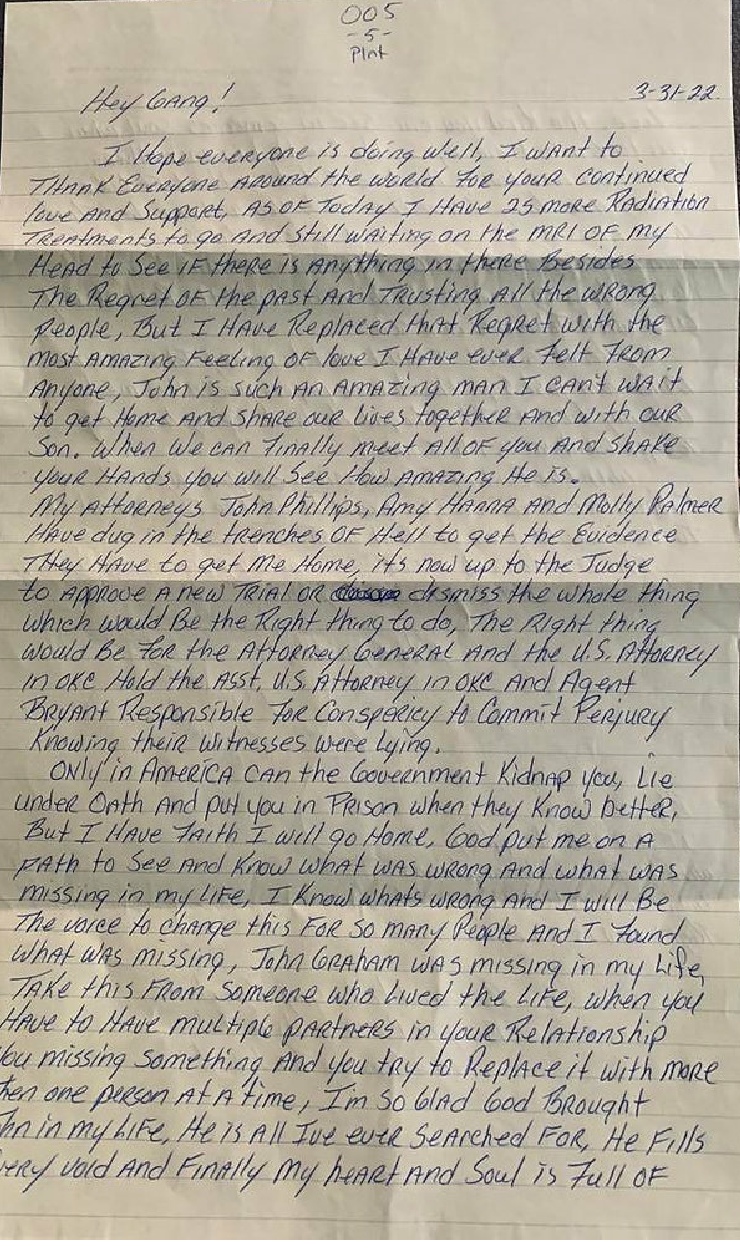 005
-5-
Plat
Hey Gang!
3-31-22
I Hope everyone is doing well, I want to
Thank Everyone Around the world For your continued
love And Support, As of Today I Have 25 more Radiation
Treatments to go And Still waiting on the MRI OF my
Head to See if there is Anything in there Besides
The Regret of the past And Trusting All the wrong
people, But I Have Replaced that Regret with the
most Amazing Feeling of love I Have ever Felt From
Anyone, John is such An Amazing man I can't wait
to get Home And share our lives together And with our
Son. When we can finally meet All of you And Shake
your Hands you will See How Amazing He is.
My Attorneys John Phillips, Amy Hanna And Molly Palmer
Have dug in the trenches of Hell to get the Evidence
They Have to get Me Home, its now up to the Judge
to Approve A new Trial or dismiss the whole thing
which would Be the Right thing to do, The Right thing
would Be For the Attorney General And the U.S. Attorney
in OKC Hold the Asst, U.S. Attorney in OKC And Agent
Bryant Responsible For Conspericy to Commit Perjury
Knowing their witnesses were lying.
Only in America can the Government Kidnap you, Lie
under Oath And put you in Prison when they Know better,
But I Have Faith I will go Home, God put me on A
path to See and Know what was wrong And what was
missing in my life, I Know whats wrong And I will Be
The voice to change this For So many People And I Found
what was missing, John Graham was missing in my Life,
Take this From Someone who Lived the Life, when you
Have to Have multiple partners in your Relationship
You missing Something And you try to Replace it with more
then one person At A time, I'm So Glad God Brought
in my Life, He is All Ive ever Searched For, He Fills
void And Finally my heart And Soul is Full of